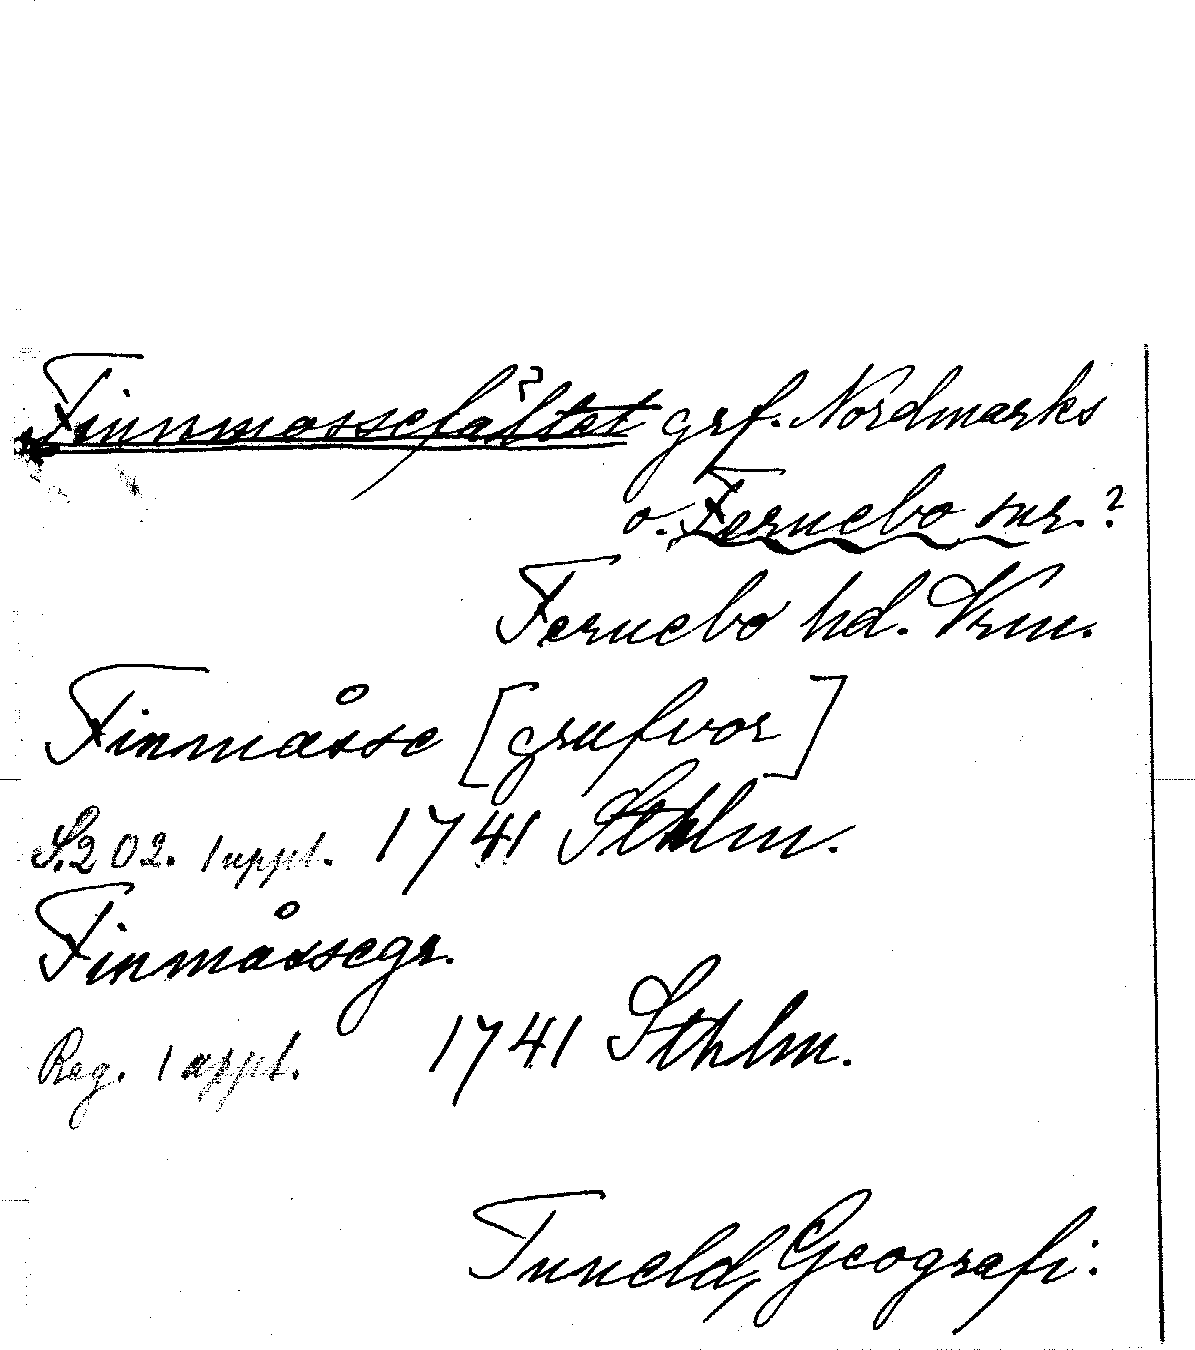 Finnmossefältet grf. Nordmarks
o. Fernebo snr.?
Fernebo hd. Vrm.
Finmåsse [grufvor]
S.202. 1 uppl. 1741 Sthlm.
Finmåssegr.
Reg. 1 uppl. 1741 Sthlm.
Tuneld, Geografi.